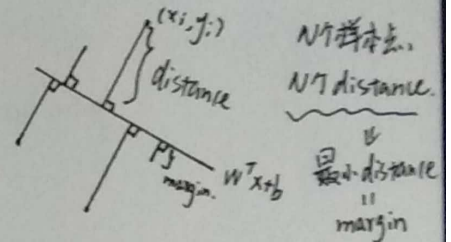 (xi, yi)
distance
margin.
wᵀx+b
N个样本点,
N个distance.
⇓
最小distance
=
margin